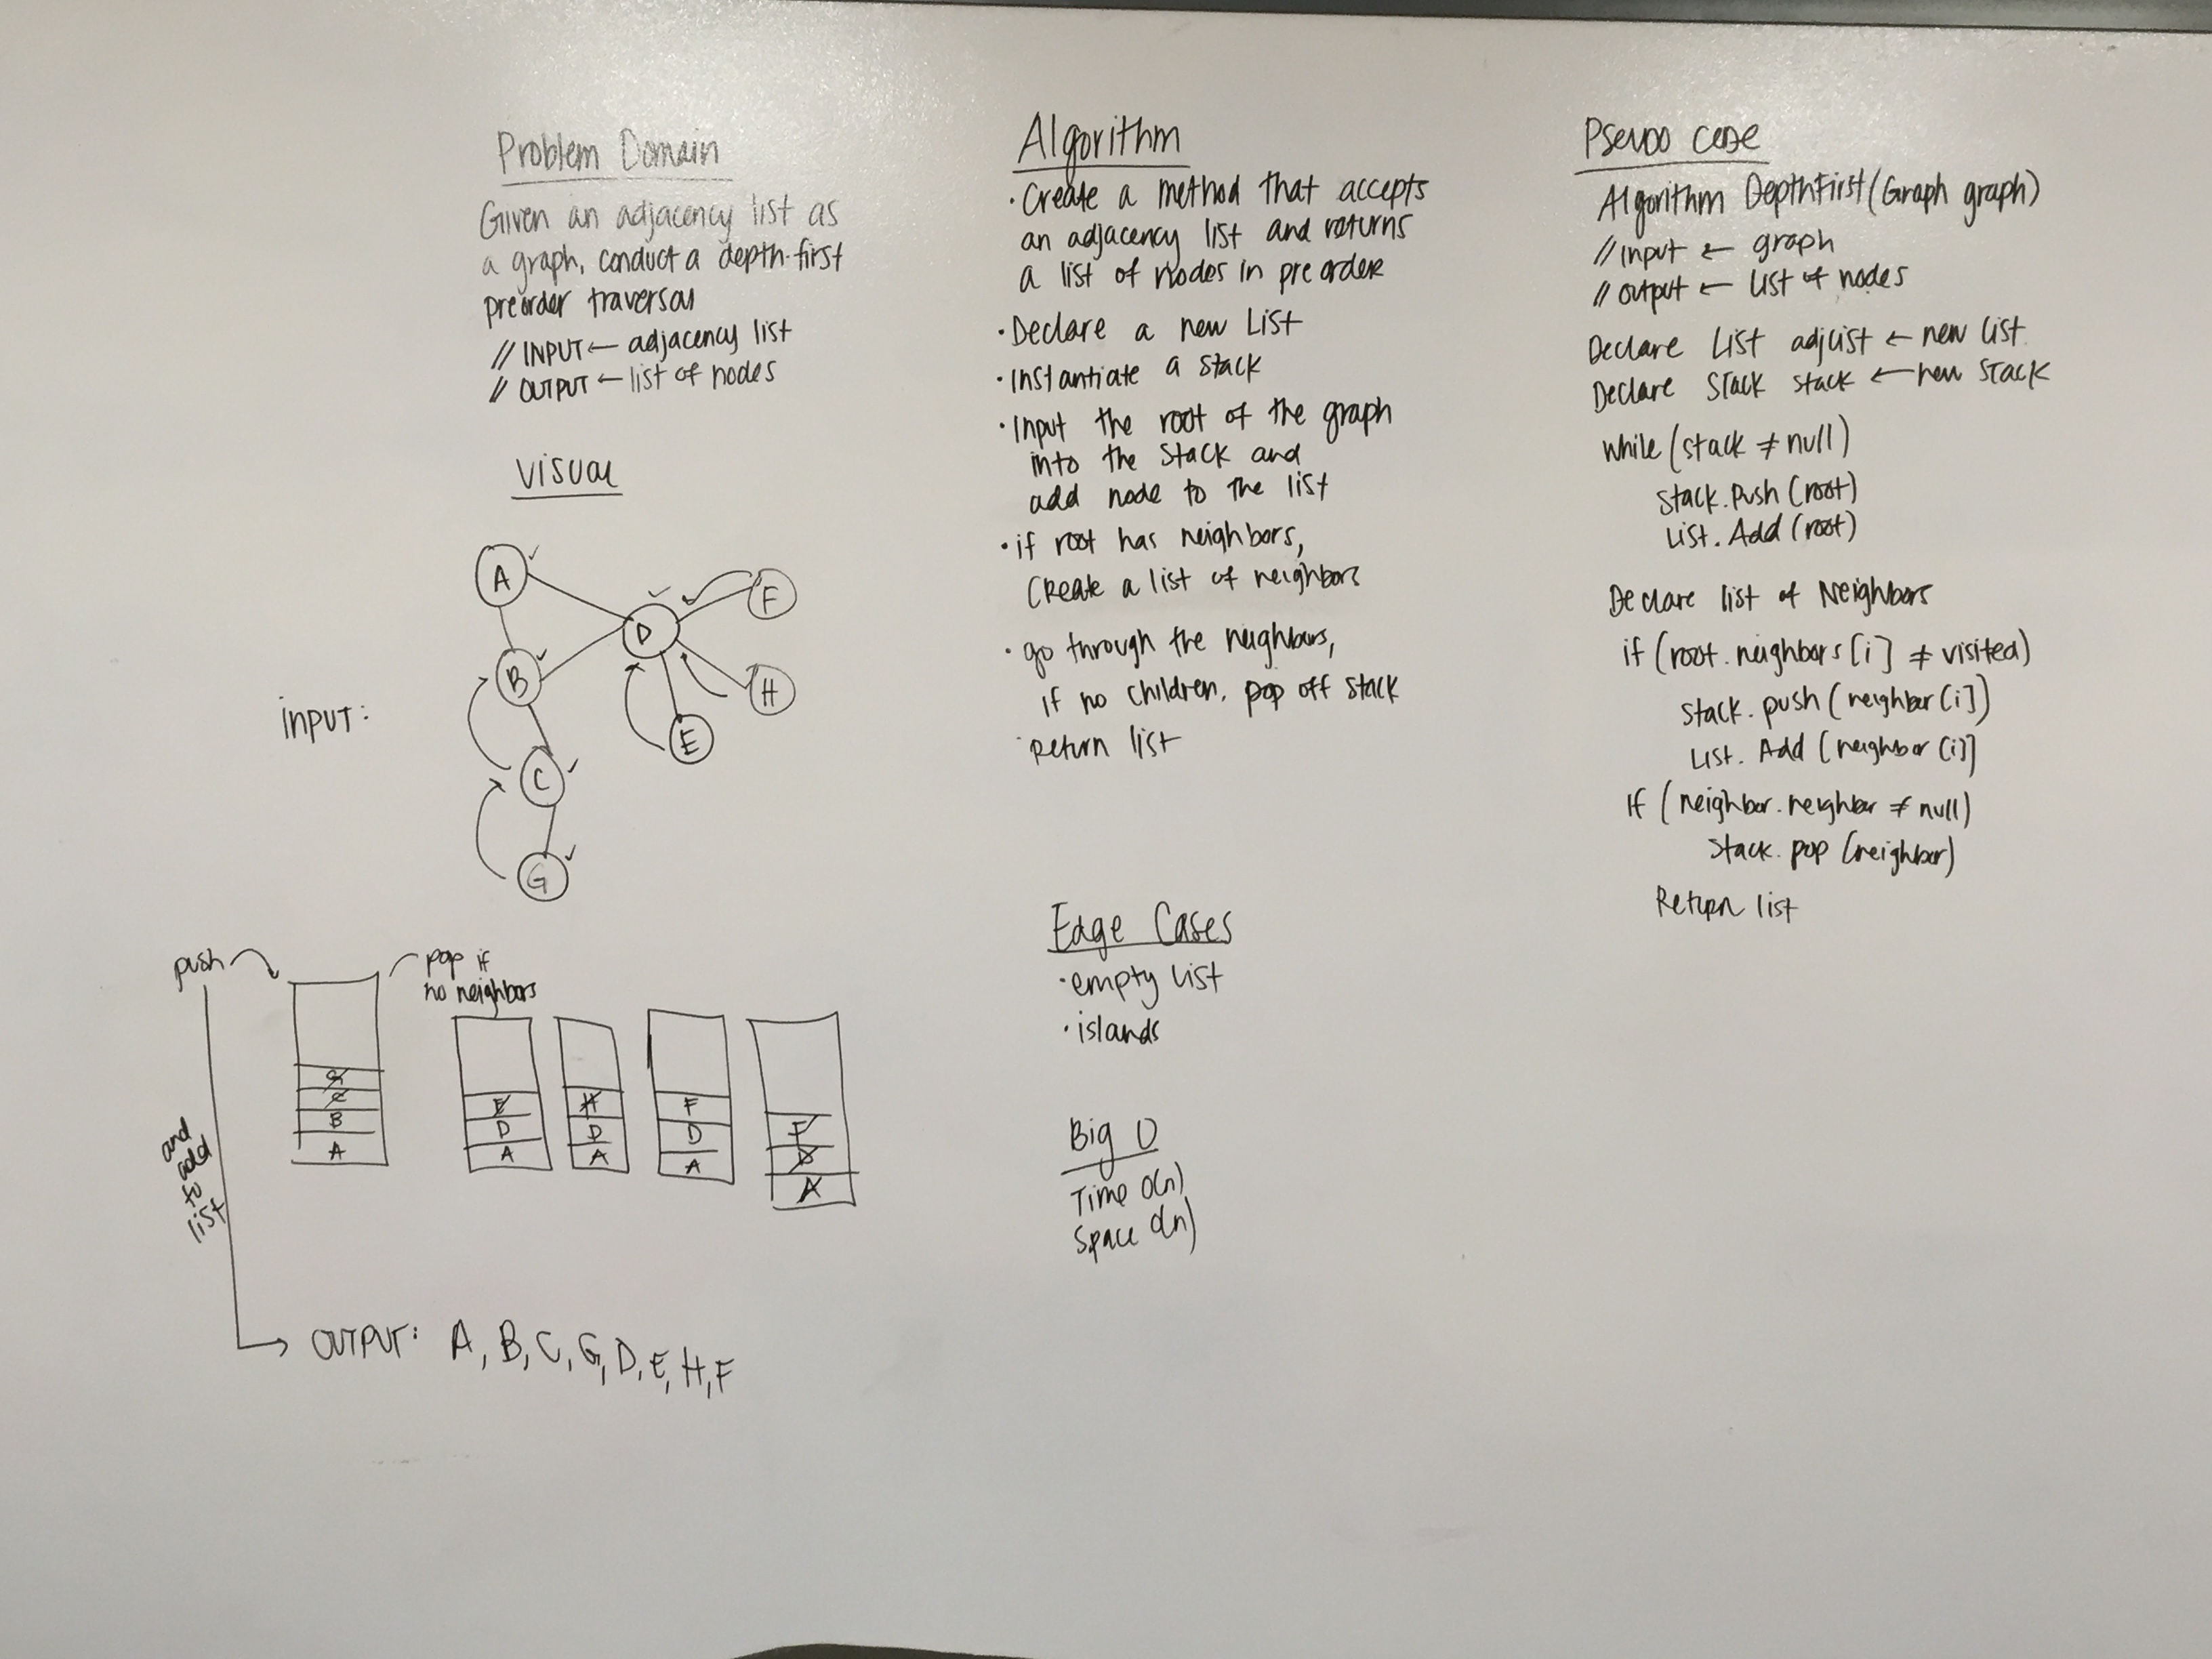 Problem Domain
Given an adjacency list as
a graph, conduct a depth-first
preorder traversal
// INPUT ← adjacency list
// OUTPUT ← list of nodes
Visual
INPUT:
A
B
C
G
D
F
H
E
push
pop if
no neighbors
and
add
to
list
G
C
B
A
E
D
A
H
D
A
F
D
A
F
D
A
OUTPUT: A, B, C, G, D, E, H, F
Algorithm
· Create a method that accepts
an adjacency list and returns
a list of nodes in preorder
· Declare a new List
· Instantiate a stack
· Input the root of the graph
into the stack and
add node to the list
· if root has neighbors,
Create a list of neighbors
· go through the neighbors,
if no children, pop off stack
· Return list
Edge Cases
· empty list
· islands
Big O
Time O(n)
Space O(n)
Pseudo Code
Algorithm DepthFirst(Graph graph)
// Input ← graph
// Output ← List of nodes
Declare List adjList ← new List
Declare Stack stack ← new Stack
while (stack ≠ null)
Stack.Push (root)
List.Add (root)
Declare list of Neighbors
if (root.neighbors[i] ≠ visited)
stack.push (neighbor[i])
List.Add (neighbor[i])
If (neighbor.neighbor ≠ null)
Stack.pop (neighbor)
Return list